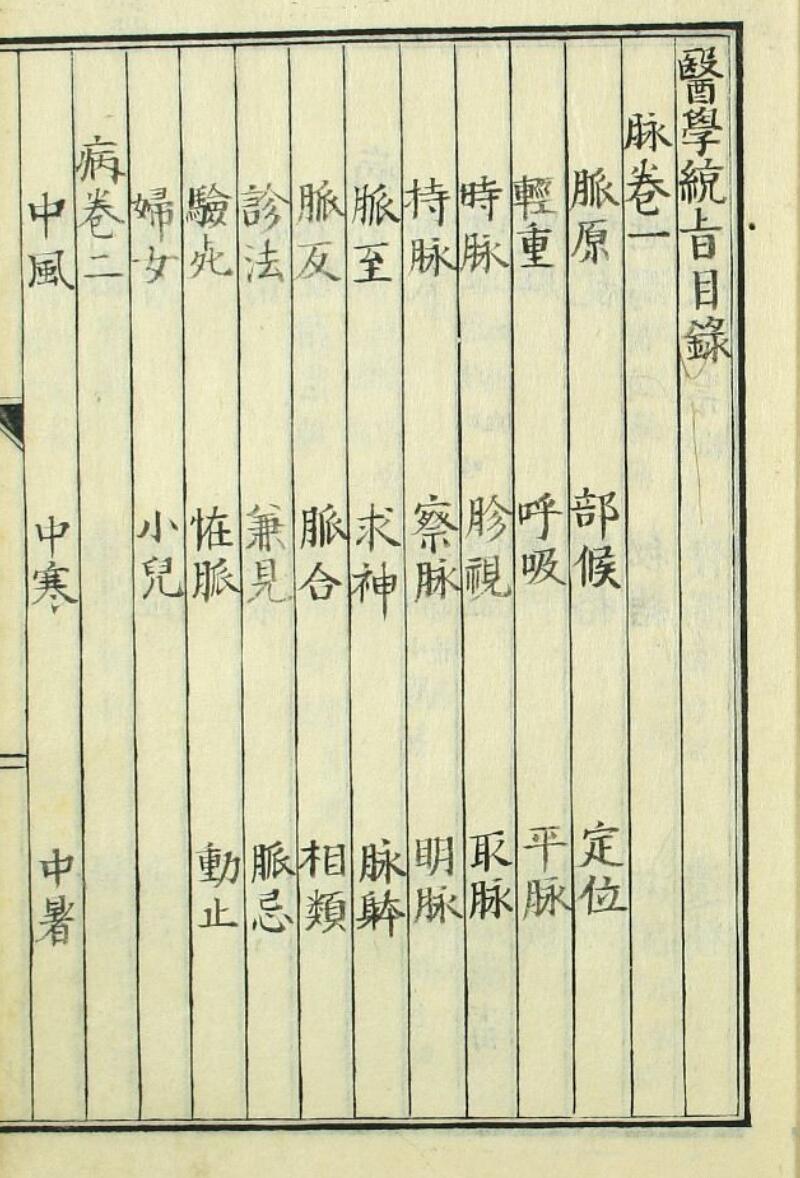 醫學統旨目錄
脉卷一
脈原 部候 定位
輕重 呼吸 平脉
時脉 胗視 取脉
持脉 察脉 明脉
脈至 求神 脉躰
脈反 脈合 相類
診法 兼見 脈忌
驗死 恠脈 動止
婦女 小兒
病卷二
中風 中寒 中暑